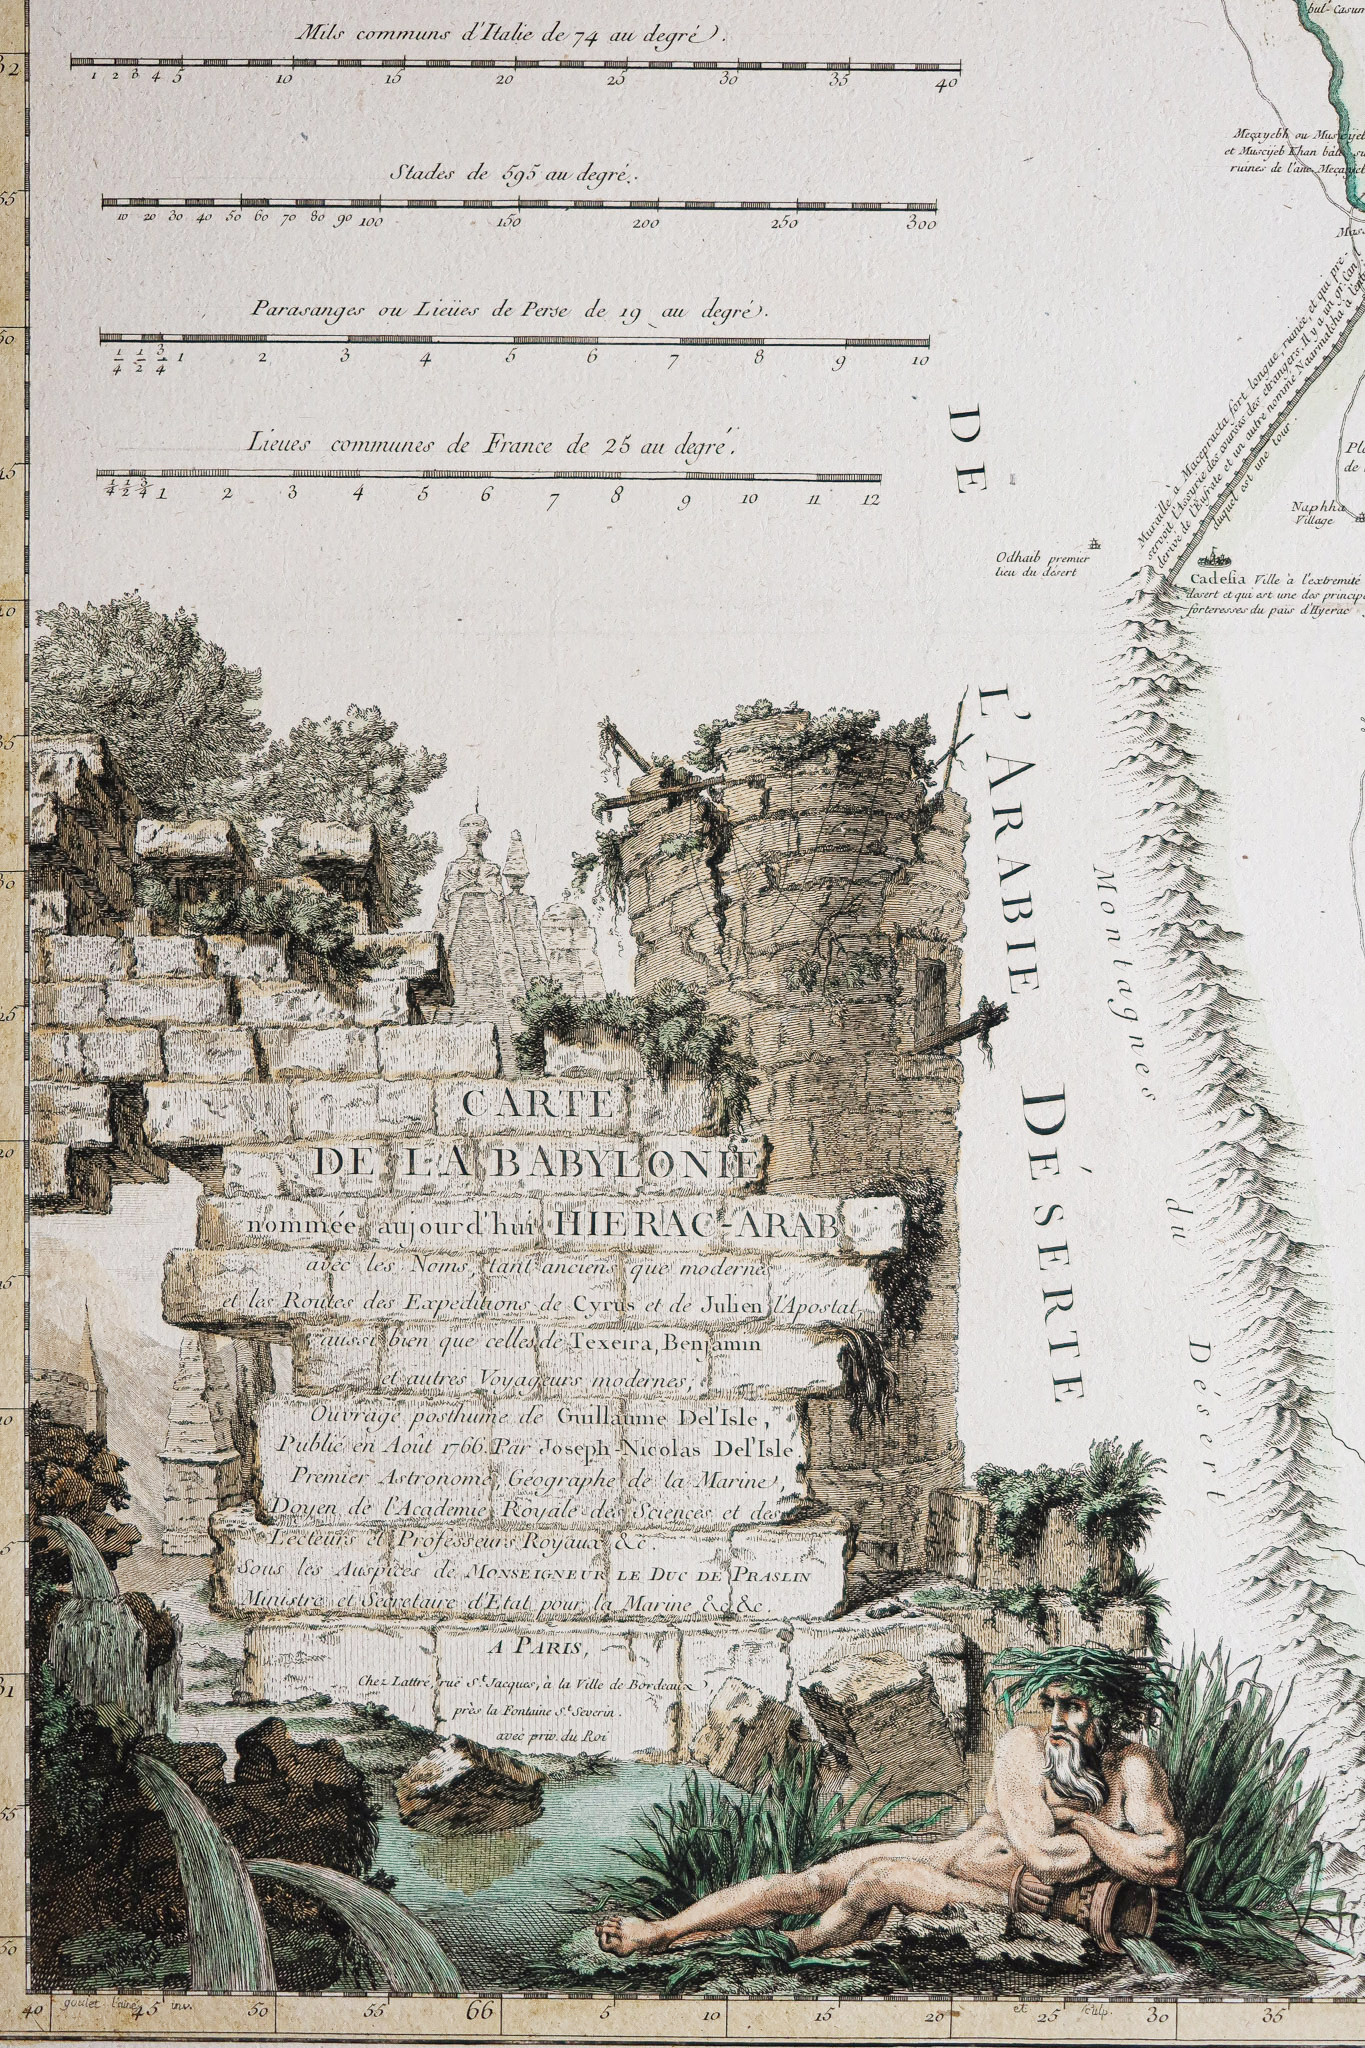 Mils communs d'Italie de 74 au degré.
1 2 3 4 5 10 15 20 25 30 35 40
Stades de 595 au degré.
10 20 30 40 50 60 70 80 90 100 150 200 250 300
Parasanges ou Lieües de Perse de 19 au degré.
1/4 1/2 3/4 1 2 3 4 5 6 7 8 9 10
Lieues communes de France de 25 au degré.
1/4 1/2 3/4 1 2 3 4 5 6 7 8 9 10 11 12
bul-Casum
Meçayebh ou
et Muscijeb Khan
ruines de l'anc.
Muraille à Macepracta fort longue, ruinée, et qui pre-
servoit l'Assyrie des courses des etrangers. Il y a un gr. Can.
derivé de l'Eufrate et un autre nommé Naarmalcha à l'ent
duquel est une tour
Naphha
Village
Odhaib premier
lieu du désert
Cadesia Ville à l'extremité
desert et qui est une des princip
forteresses du païs d'Hyerac
DE L'ARABIE DÉSERTE
Montagnes du Désert
CARTE
DE LA BABYLONIE
nommée aujourd'hui HIERAC-ARAB
avec les Noms, tant anciens que modernes
et les Routes des Expeditions de Cyrus et de Julien l'Apostat
aussi bien que celles de Texeira, Benjamin
et autres Voyageurs modernes;
Ouvrage posthume de Guillaume Del'Isle,
Publié en Août 1766. Par Joseph-Nicolas Del'Isle.
Premier Astronome, Géographe de la Marine,
Doyen de l'Academie Royale des Sciences et des
Lecteurs et Professeurs Royaux &c.
Sous les Auspices de MONSEIGNEUR LE DUC DE PRASLIN
Ministre et Secretaire d'Etat pour la Marine &c &c.
A PARIS,
Chez Lattré, ruë St. Jacques, à la Ville de Bordeaux,
près la Fontaine St. Severin.
avec priv. du Roi
32
55
50
45
40
35
30
25
20
15
10
5
31
55
50
40 45 50 55 66 5 10 15 20 25 30 35
inv. et sculp.